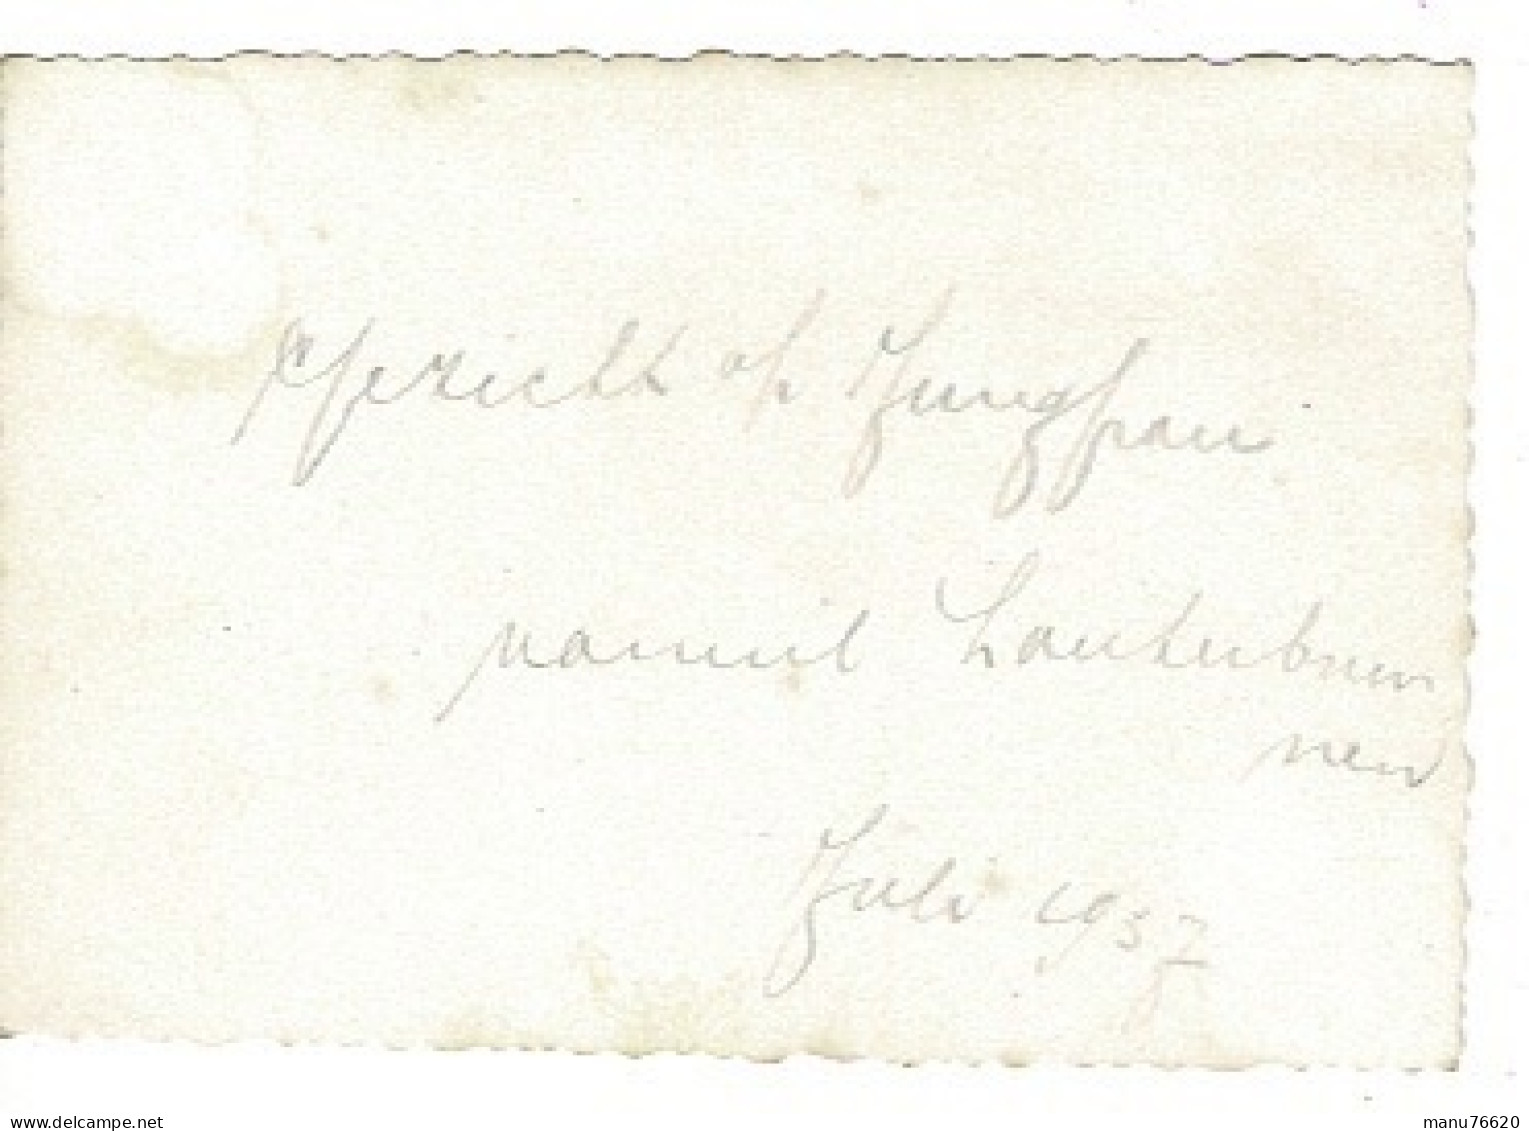 Gezicht op Jungfrau
vanuit Lauterbrun
nen
Juli 1937
www.delcampe.net
manu76620